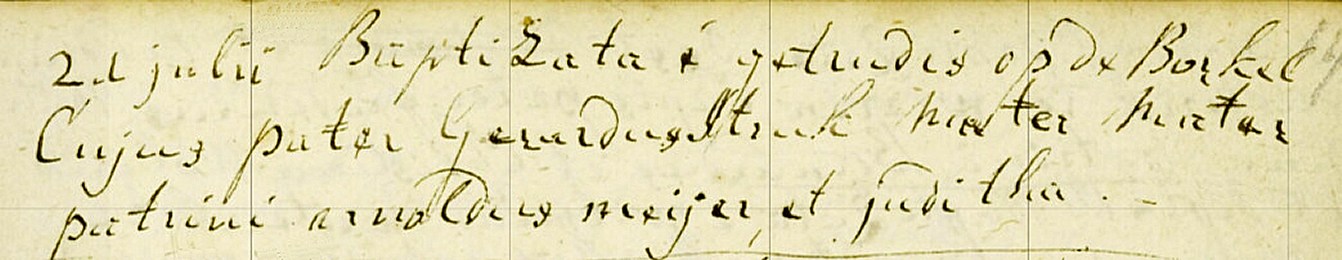 2d julii Baptizata é getrudis op de Borkel
Cujus pater Gerardus Struk mater mater
patrini arnoldus meijer, et juditha . -